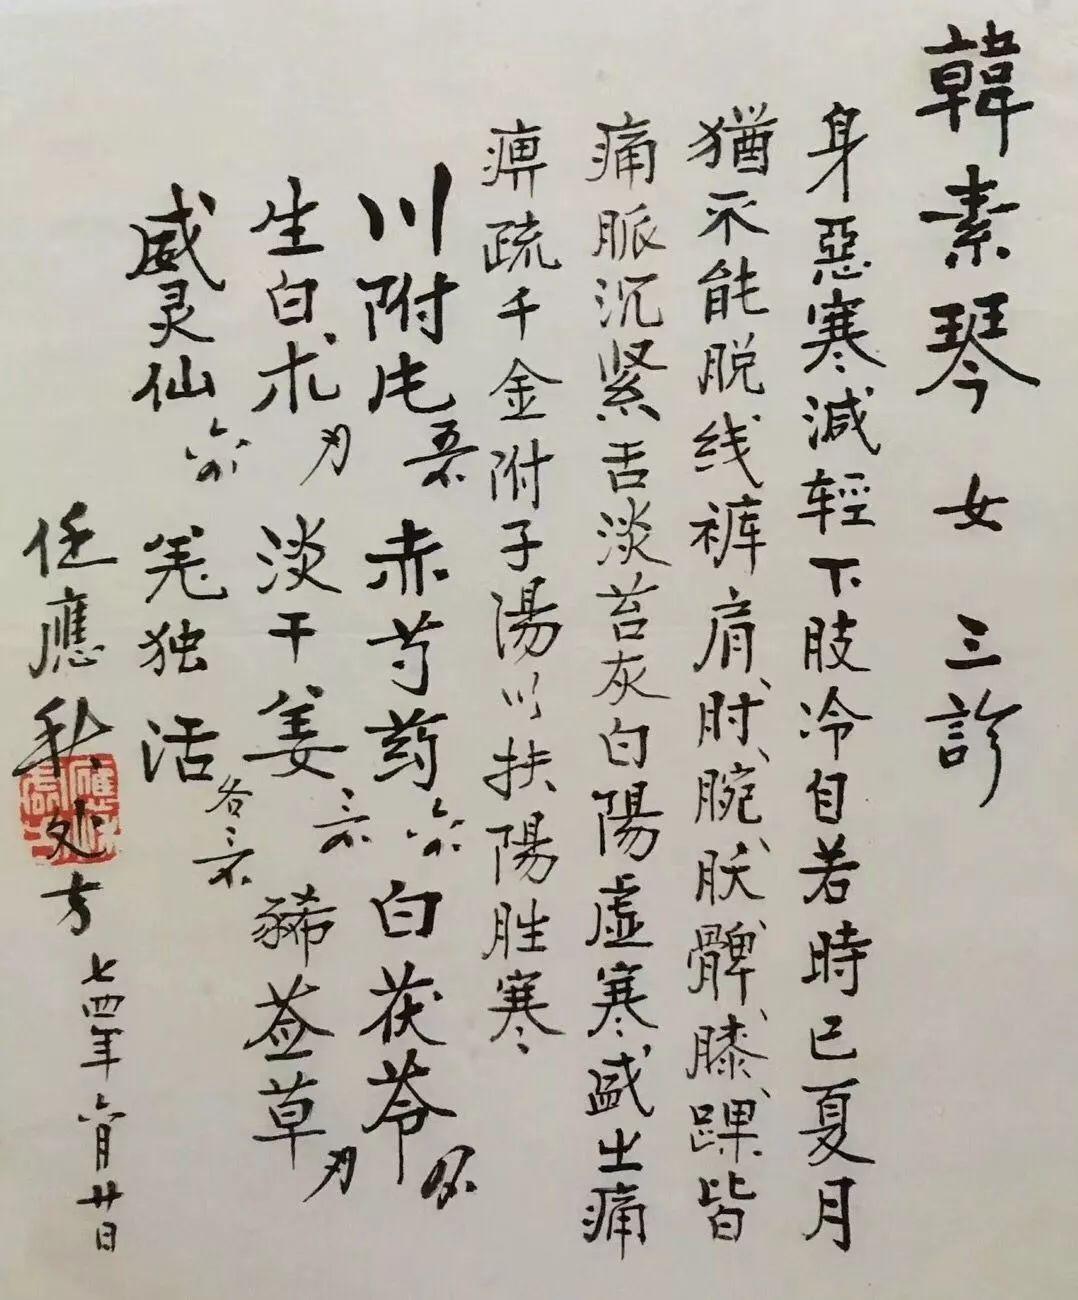 韓素琴 女 三診
身惡寒減輕下肢冷自若時已夏月
猶不能脱线裤肩、肘、腕、肷、髀、膝、踝皆
痛脈沉紧舌淡苔灰白陽虚寒盛之痛
痹疏千金附子湯以扶陽胜寒
川附片 赤芍药 白茯苓
生白术 淡干姜 豨莶草
威灵仙 羌独活 各
任應秋处方
七四年六月廿日